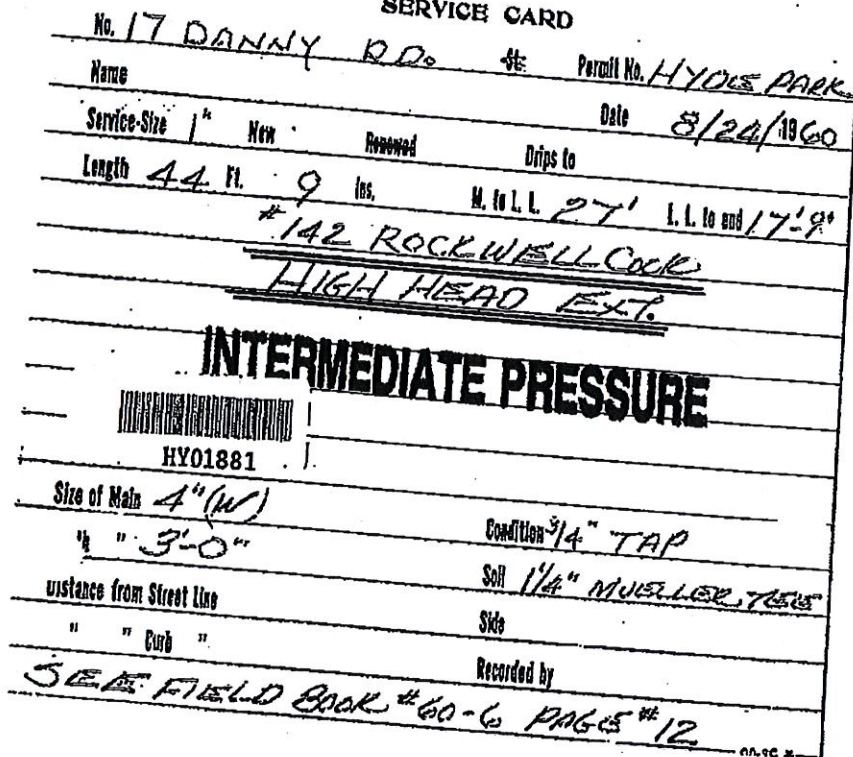 SERVICE CARD
No. 17 DANNY RD. St. Permit No. HYDE PARK
Name Date 8/24/1960
Service-Size 1" New Renewed Drips to
Length 44 Ft. 9 Ins. M. to L. L. 27' L. L. to end 17'-9"
#142 ROCKWELL COCK
HIGH HEAD EXT.
INTERMEDIATE PRESSURE
HY01881
Size of Main 4"(W) Condition 3/4" TAP
" 3'-0" Soil 1 1/4" MUELLER TEE
Distance from Street Line Side
" " Curb " Recorded by
SEE FIELD BOOK #60-6 PAGE #12